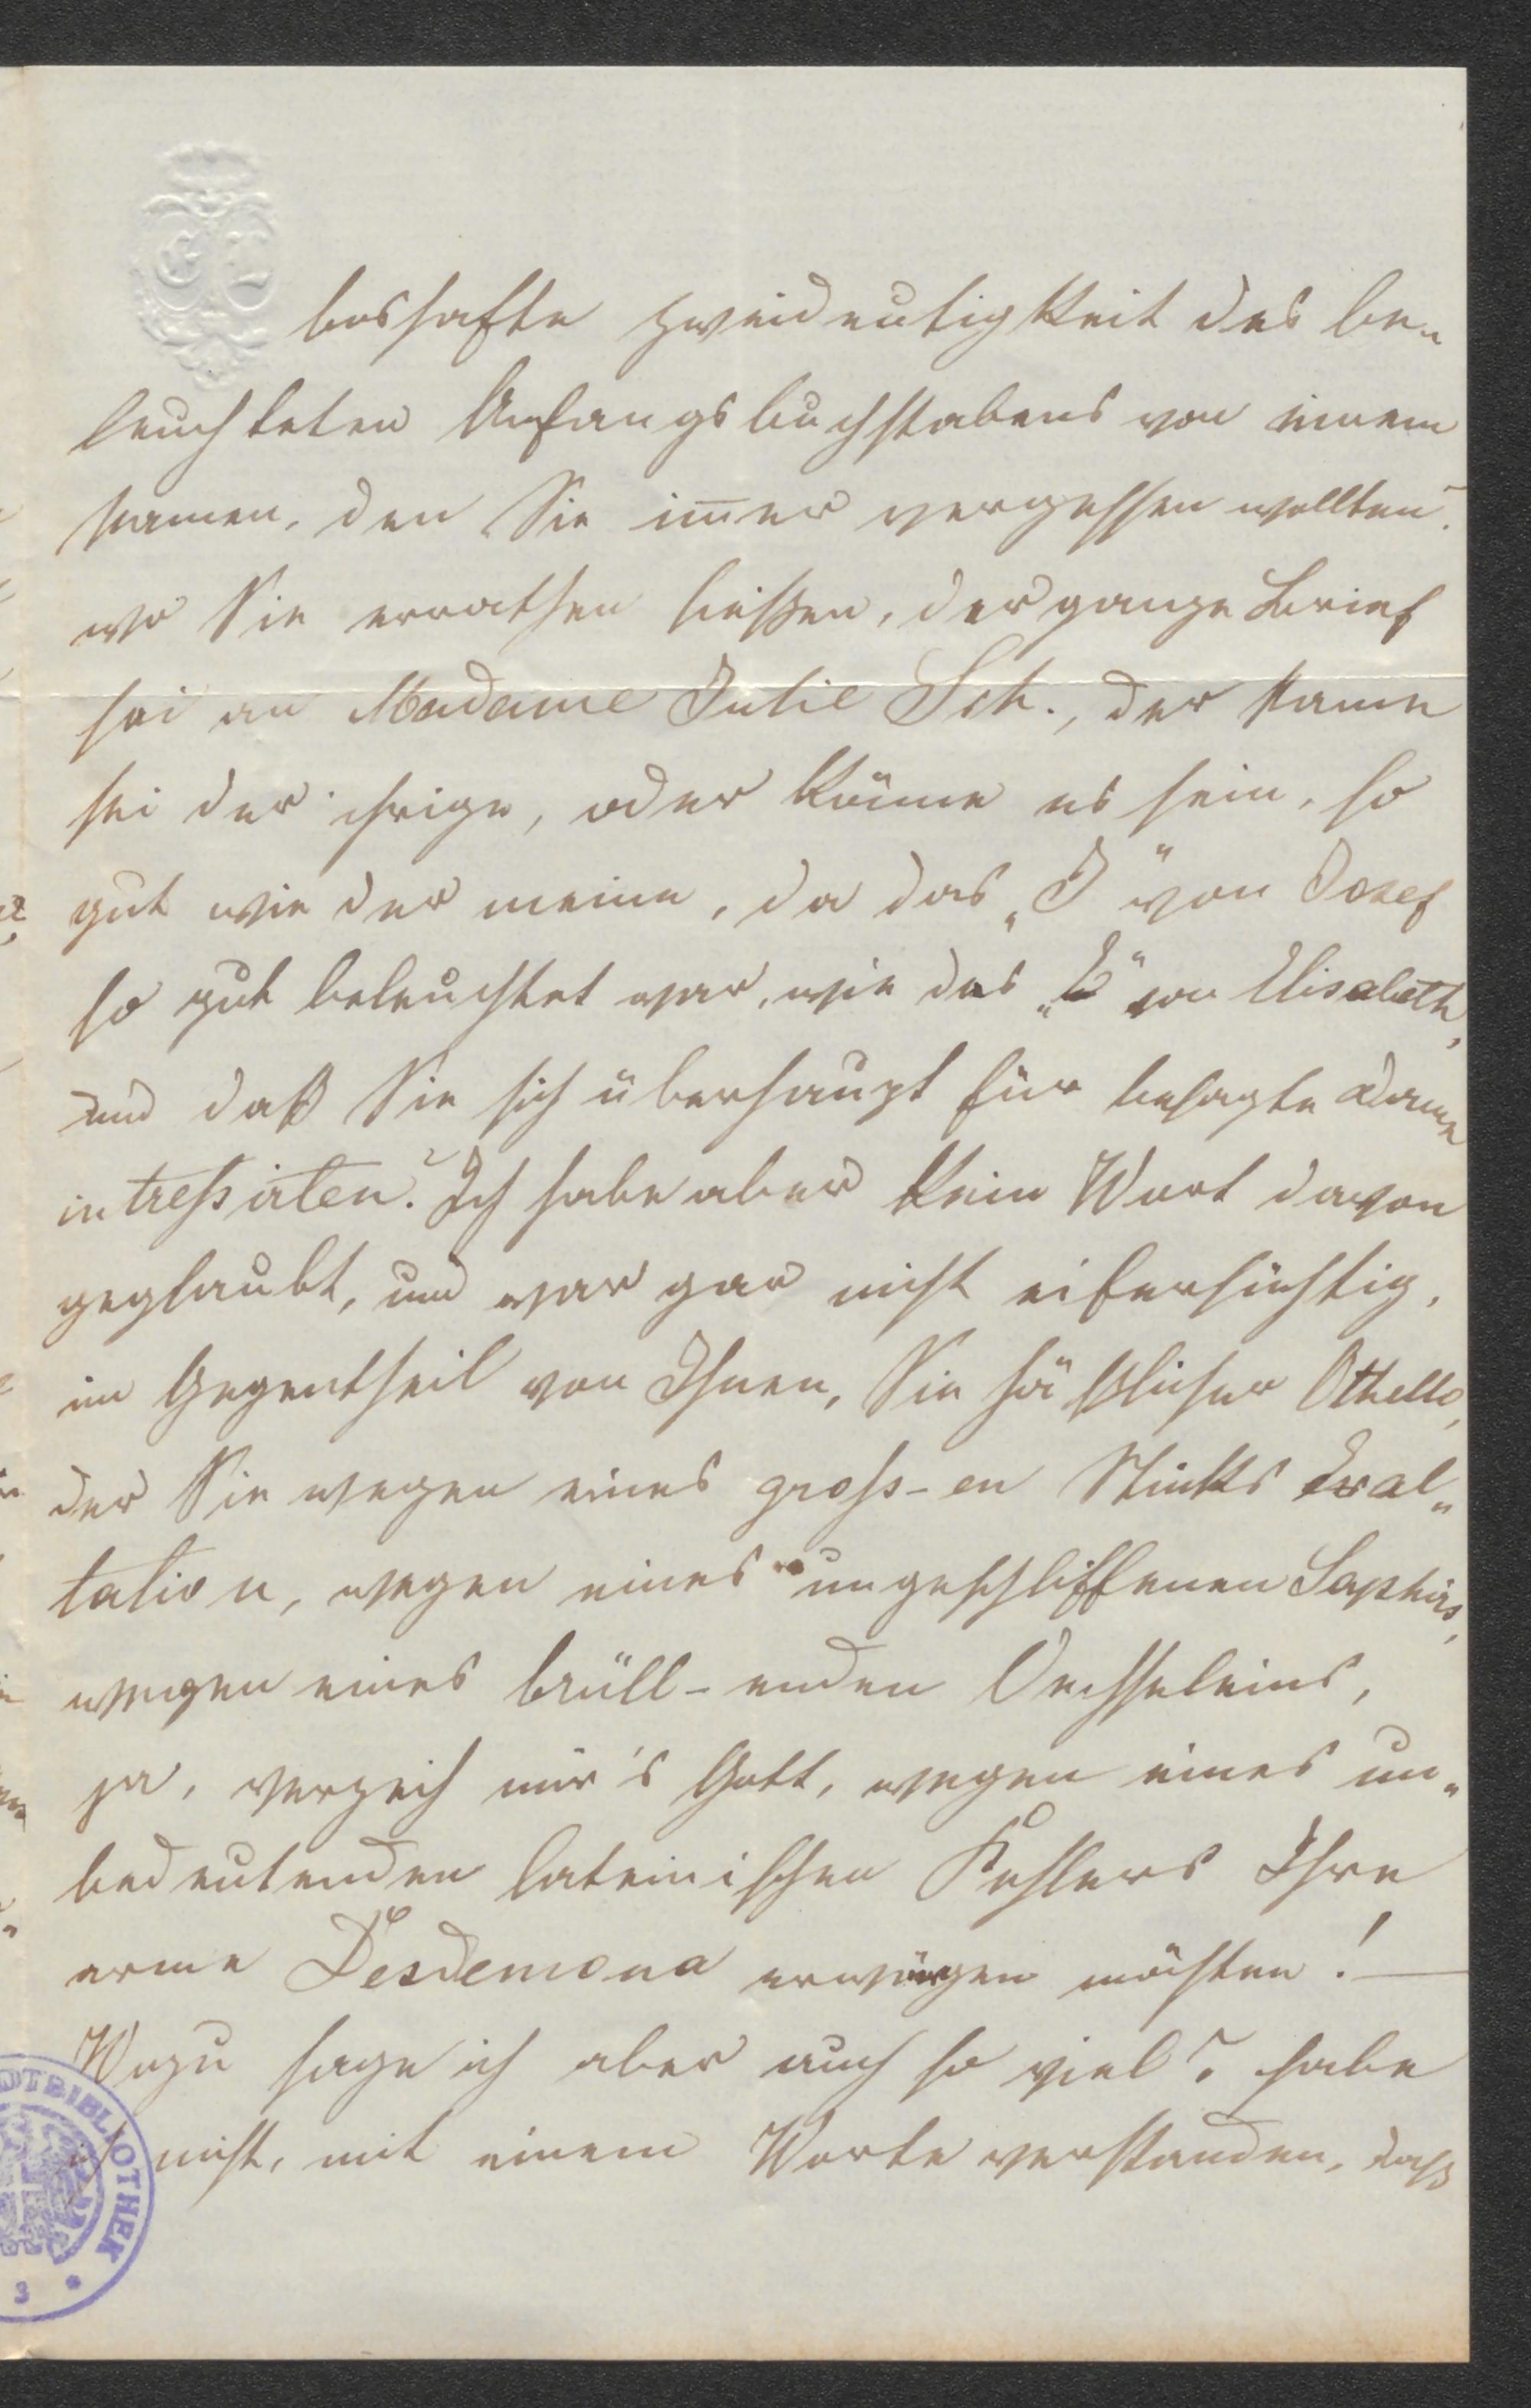 boshafte Zweideutigkeit des be„
leuchteten Anfangsbuchstabens von einem
Namen, den Sie im̅er vergessen wollten?
wo Sie errathen liessen, der ganze Brief
sei an Madame Julie Sch., der Name
sei der ihrige, oder könne es sein, so
gut wie der meine, da das „J“ von Josef
so gut beleuchtet war, wie das „E“ von Elisabeth,
und daß Sie sich überhaupt für besagte Dame
intressirten? Ich habe aber kein Wort davon
geglaubt, und war gar nicht eifersüchtig,
im Gegentheil von Ihnen, Sie häßlicher Othello,
der Sie wegen eines gross-en Stücks Exal„
tation, wegen eines ungeschliffenen Saphirs,
wegen eines brüll-enden Oechseleins,
ja, verzeih mir's Gott, wegen eines un„
bedeutenden lateinischen Fehlers Ihre
arme Desdemona erwürgen möchten! —
Wozu sage ich aber auch so viel? habe
ich nicht, mit einem Worte verstanden, dass
DTBIBLIOTHEK
3 *